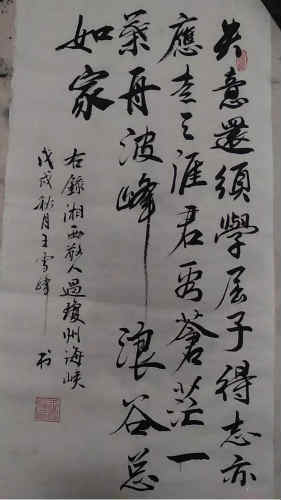 失意還須學屈子得志亦
應走天涯君看蒼茫一
葉舟波峰浪谷总
如家
右錄湘西散人過瓊州海峽
戊戌秋月王雪峰书